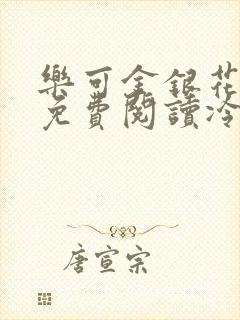 樂可金銀花
免費閱讀冷
唐宣宗